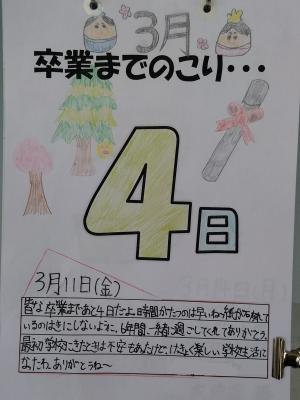 3月
卒業までのこり・・・
4日
3月11日(金)
皆な卒業まであと4日だよ。時間がたつのは早いね〜紙が破れて
いるのはきにしないように。6年間一緒に過ごしてくれてありがとう。
最初学校にきたときは不安もあったけど、けっきょく楽しい学校生活に
なったわ。ありがとうね〜